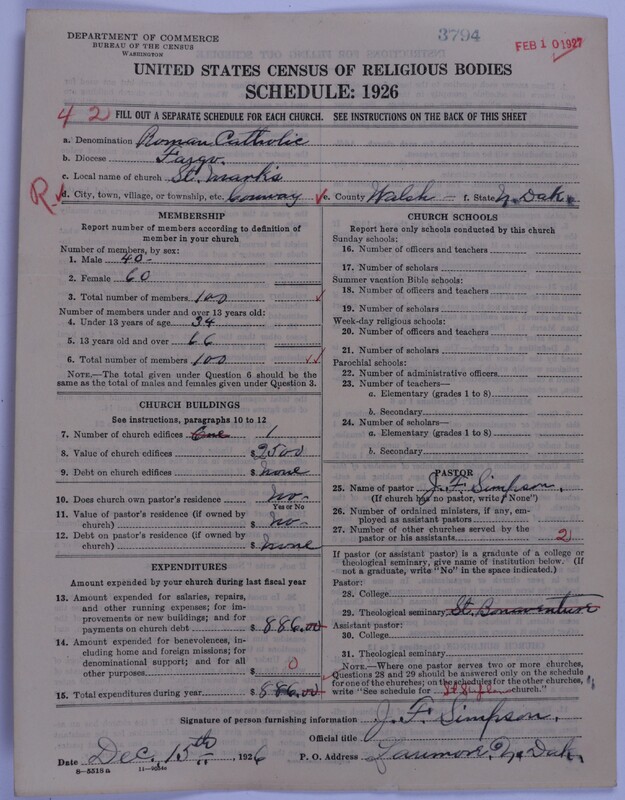 DEPARTMENT OF COMMERCE
BUREAU OF THE CENSUS
WASHINGTON
3794
FEB 10 1927
UNITED STATES CENSUS OF RELIGIOUS BODIES
SCHEDULE: 1926
4 2 FILL OUT A SEPARATE SCHEDULE FOR EACH CHURCH. SEE INSTRUCTIONS ON THE BACK OF THIS SHEET
a. Denomination Roman Catholic
b. Diocese Fargo.
c. Local name of church St. Mark's
R. d. City, town, village, or township, etc. Conway e. County Walsh f. State N. Dak.
MEMBERSHIP
Report number of members according to definition of
member in your church
Number of members, by sex:
1. Male 40
2. Female 60
3. Total number of members 100
Number of members under and over 13 years old:
4. Under 13 years of age 34
5. 13 years old and over 66
6. Total number of members 100
NOTE.—The total given under Question 6 should be the
same as the total of males and females given under Question 3.
CHURCH BUILDINGS
See instructions, paragraphs 10 to 12
7. Number of church edifices One 1
8. Value of church edifices $ 2500
9. Debt on church edifices $ none
10. Does church own pastor's residence no
Yes or No
11. Value of pastor's residence (if owned by
church) $ no
12. Debt on pastor's residence (if owned by
church) $ none
EXPENDITURES
Amount expended by your church during last fiscal year
13. Amount expended for salaries, repairs,
and other running expenses; for im-
provements or new buildings; and for
payments on church debt $ 886.00
14. Amount expended for benevolences,
including home and foreign missions; for
denominational support; and for all
other purposes $ 0
15. Total expenditures during year $ 886.00
CHURCH SCHOOLS
Report here only schools conducted by this church
Sunday schools:
16. Number of officers and teachers
17. Number of scholars
Summer vacation Bible schools:
18. Number of officers and teachers
19. Number of scholars
Week-day religious schools:
20. Number of officers and teachers
21. Number of scholars
Parochial schools:
22. Number of administrative officers
23. Number of teachers—
a. Elementary (grades 1 to 8)
b. Secondary
24. Number of scholars—
a. Elementary (grades 1 to 8)
b. Secondary
PASTOR
25. Name of pastor J. F. Simpson.
(If church has no pastor, write "None")
26. Number of ordained ministers, if any, em-
ployed as assistant pastors
27. Number of other churches served by the
pastor or his assistants 2
If pastor (or assistant pastor) is a graduate of a college or
theological seminary, give name of institution below. (If
not a graduate, write "No" in the space indicated.)
Pastor:
28. College
29. Theological seminary St. Bonaventure
Assistant pastor:
30. College
31. Theological seminary
NOTE.—Where one pastor serves two or more churches,
Questions 28 and 29 should be answered only on the schedule
for one of the churches; on the schedules for the other churches,
write "See schedule for church."
Signature of person furnishing information J. F. Simpson.
Official title
Date Dec. 15th, 1926 P. O. Address Larimore, N. Dak.
8-5518a